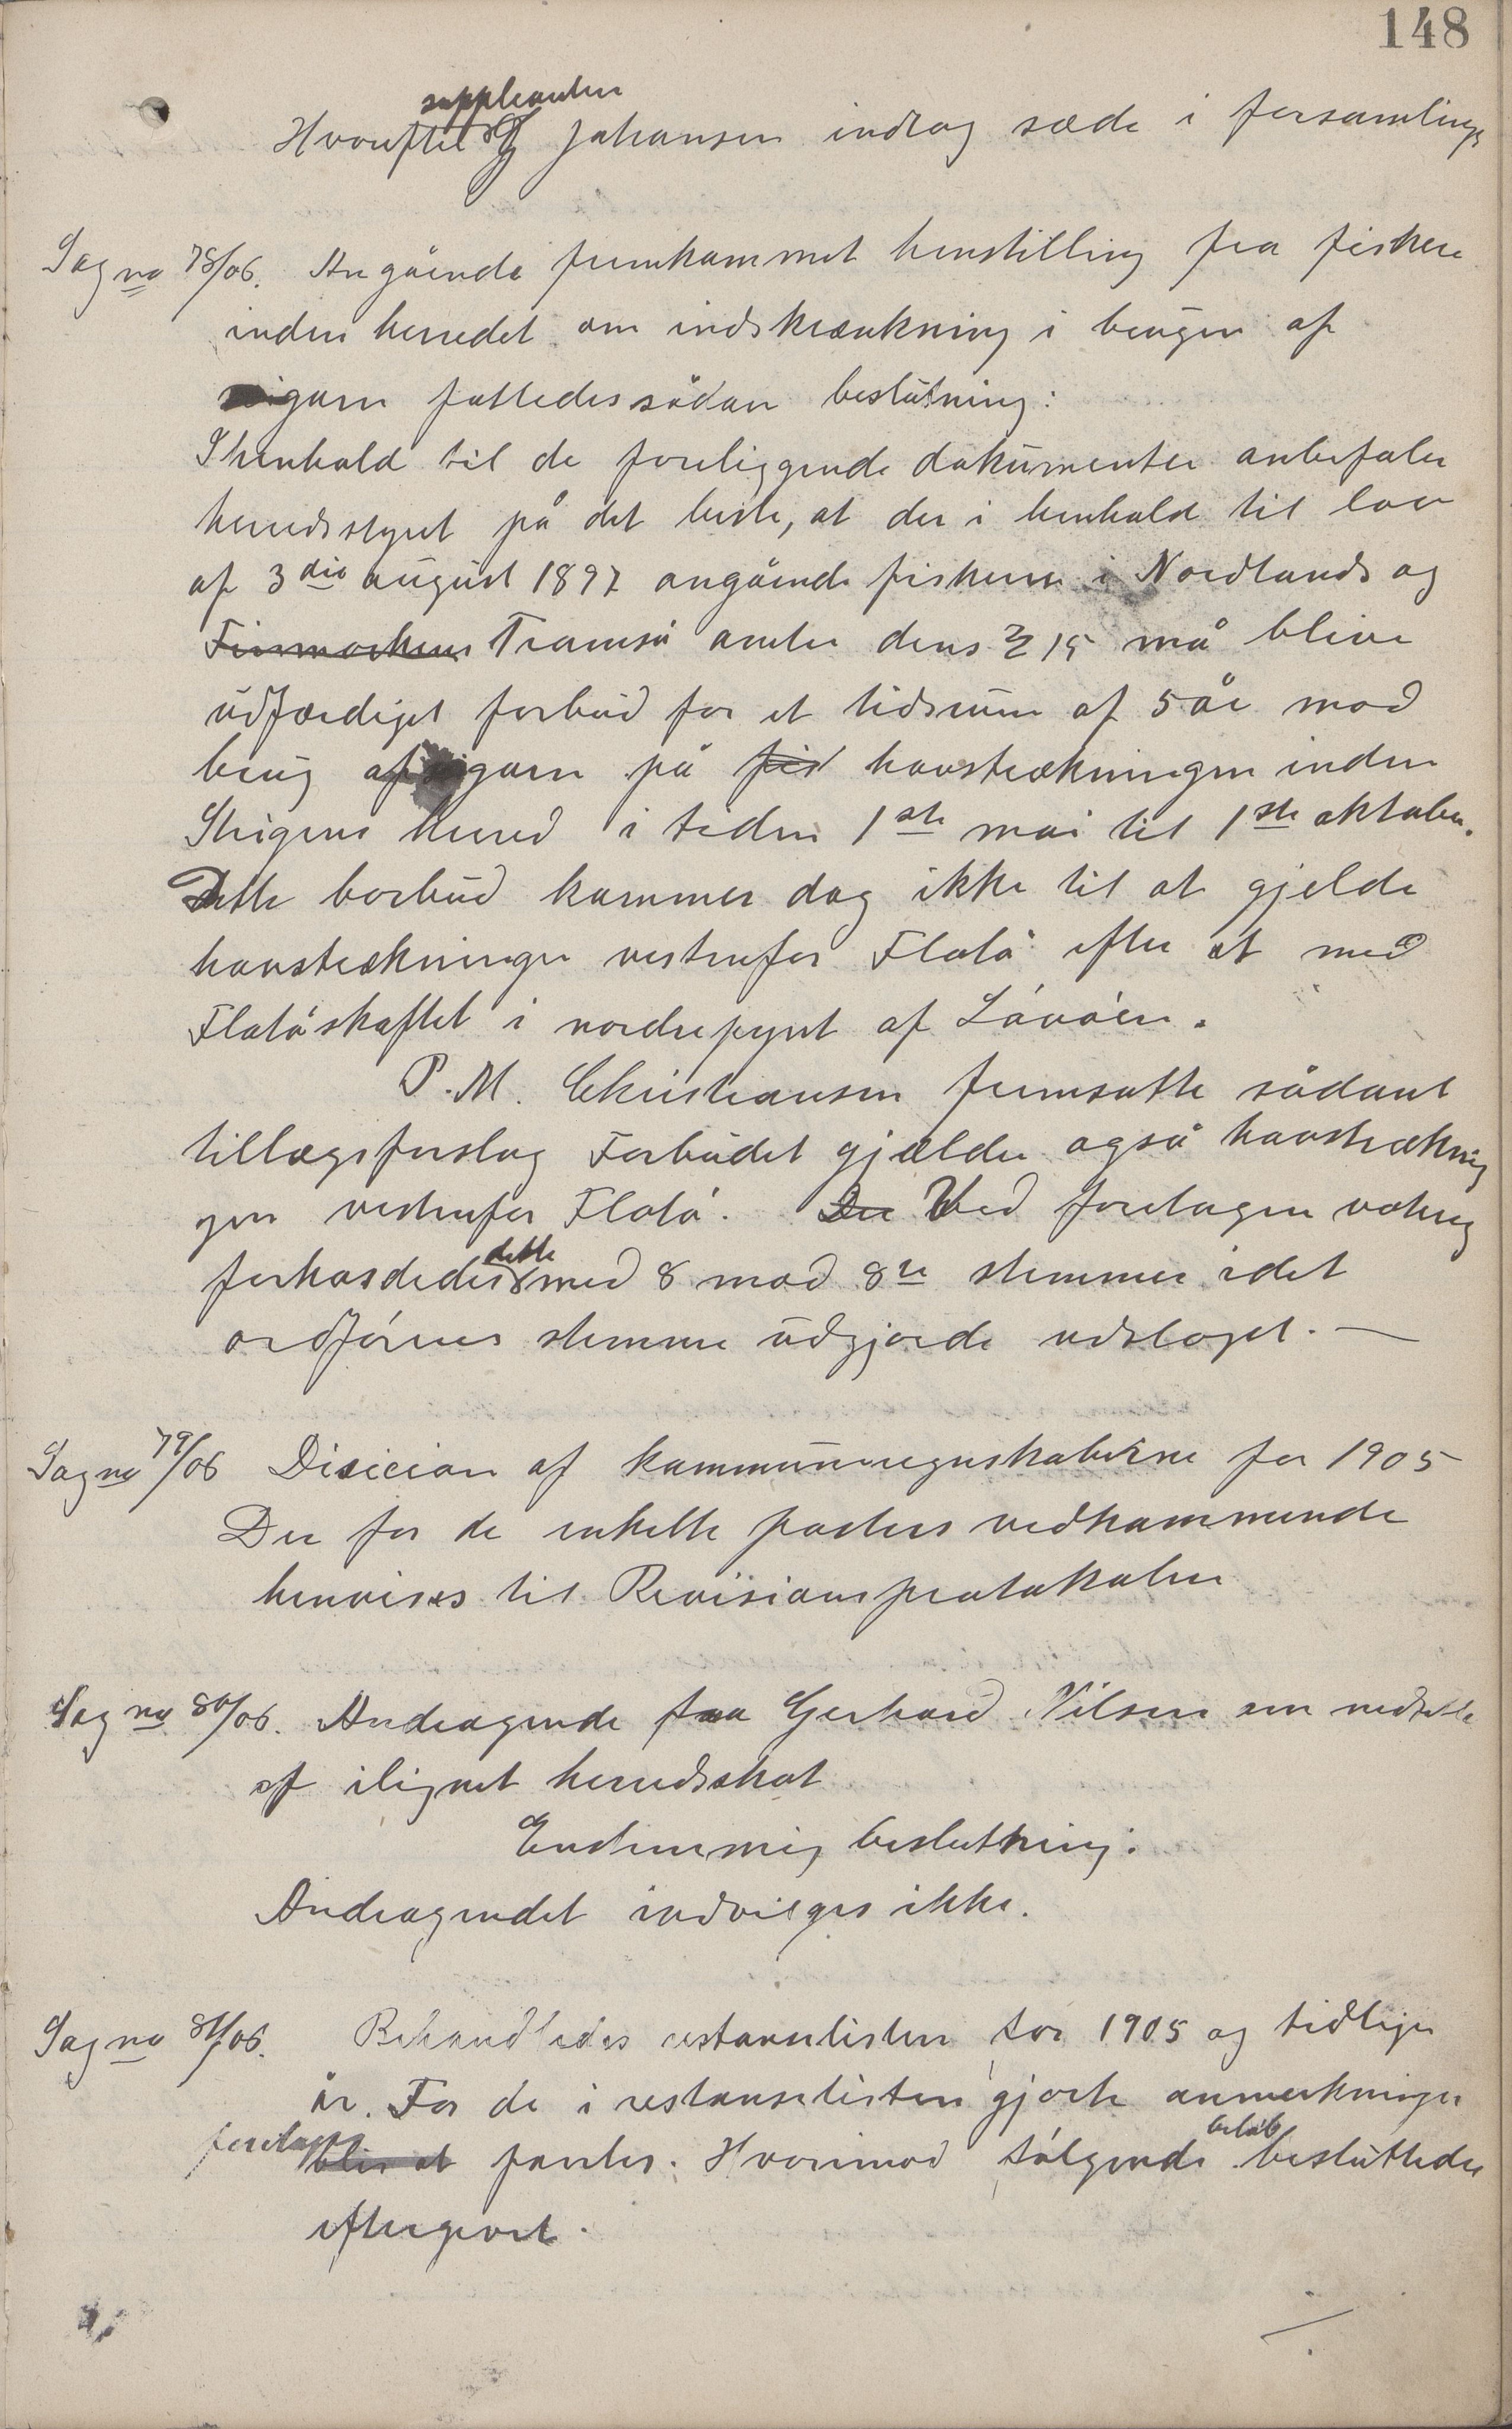 148
suppleanten
Hvorefter J Johansen indtog sæde i forsamlingen
Sag no 78/06. Angående fremkommet henstilling fra fiskere
inden herredet om indskrænkning i brugen af
garn fattedes sådan beslutning:
I henhold til de foreliggende dokumenter anbefaler
herredsstyret på det beste, at der i henhold til lov
af 3die august 1897 angående fiskeriene i Nordlands og
Finmarkens Tromsø amter dens § 15 må blive
udfærdiget forbud for et tidsrum af 5 år mod
brug af garn på fis havstrækningen inden
Steigens herred i tiden 1ste mai til 1ste oktober.
Dette forbud kommer dog ikke til at gjelde
havstrækningen vestenfor Flatø efter et med
Flatøskaftet i nordrepynt af Løvøen.
P. M. Christiansen fremsatte sådant
tillægsforslag Forbudet gjælder også havstrækning
gen vestenfor Flatø. Der Ved foretagen votering
forkastedes dette med 8 mod 8te stemmer idet
ordførerens stemme udgjorde udslaget. —
Sag no 79/06 Desicion af kommuneregnskaberne for 1905
Der for de enkelte posters vedkommende
henvises til Revisionsprotokolen
Sag no 80/06. Andragende fra Gerhard Nilsen om nedsættelse
af ilignet herredsskat
Enstemmig beslutning:
Andragendet indvilges ikke.
Sag no 81/06. Behandledes restanselisten for 1905 og tidligere
år. For de i restanselisten gjorte anmerkninger
foretages beløb
blir at Hvorimod følgende besluttedes
eftergivet.